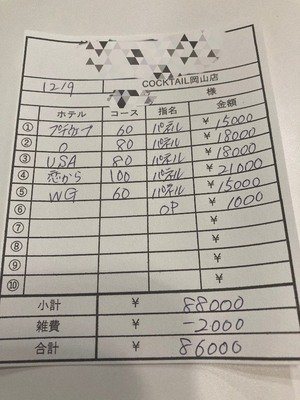 COCKTAIL岡山店
12/9 様
ホテル コース 指名 金額
① プチカープ 60 パネル ¥15000
② O 80 パネル ¥18000
③ USA 80 パネル ¥18000
④ 恋から 100 パネル ¥21000
⑤ WG 60 パネル ¥15000
⑥ OP ¥1000
⑦ ¥
⑧ ¥
⑨ ¥
⑩ ¥
小計 ¥ 88000
雑費 ¥ -2000
合計 ¥ 86000